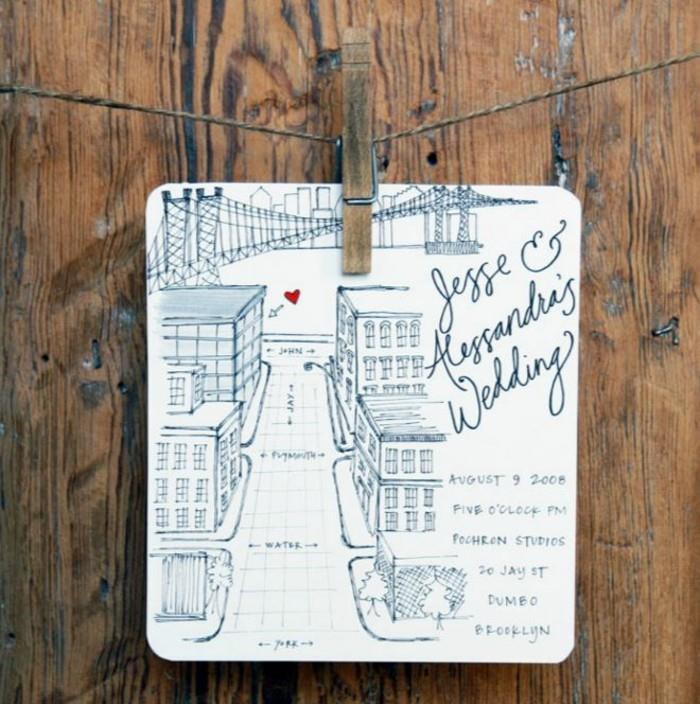 Jesse &
Alessandra's
Wedding
← JOHN →
← JAY →
← PLYMOUTH →
← WATER →
← YORK →
AUGUST 9 2008
FIVE O'CLOCK PM
POCHRON STUDIOS
20 JAY ST
DUMBO
BROOKLYN